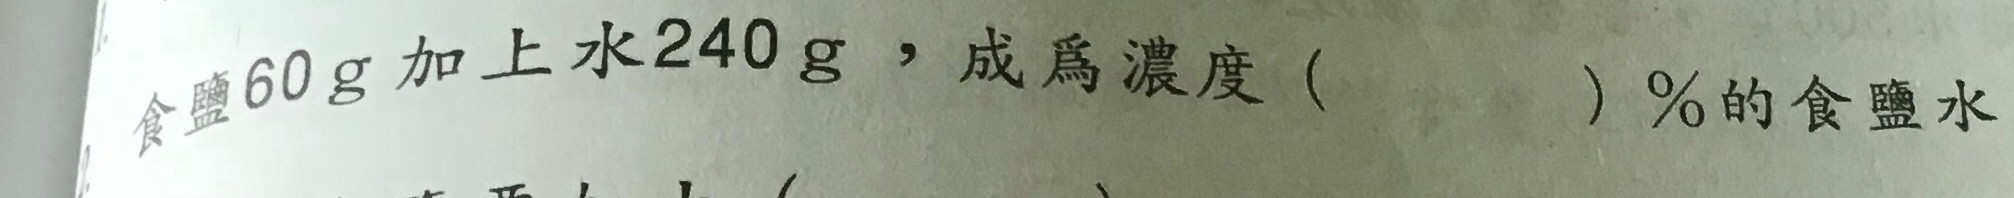 食鹽60g加上水240g，成爲濃度(　　　)%的食鹽水